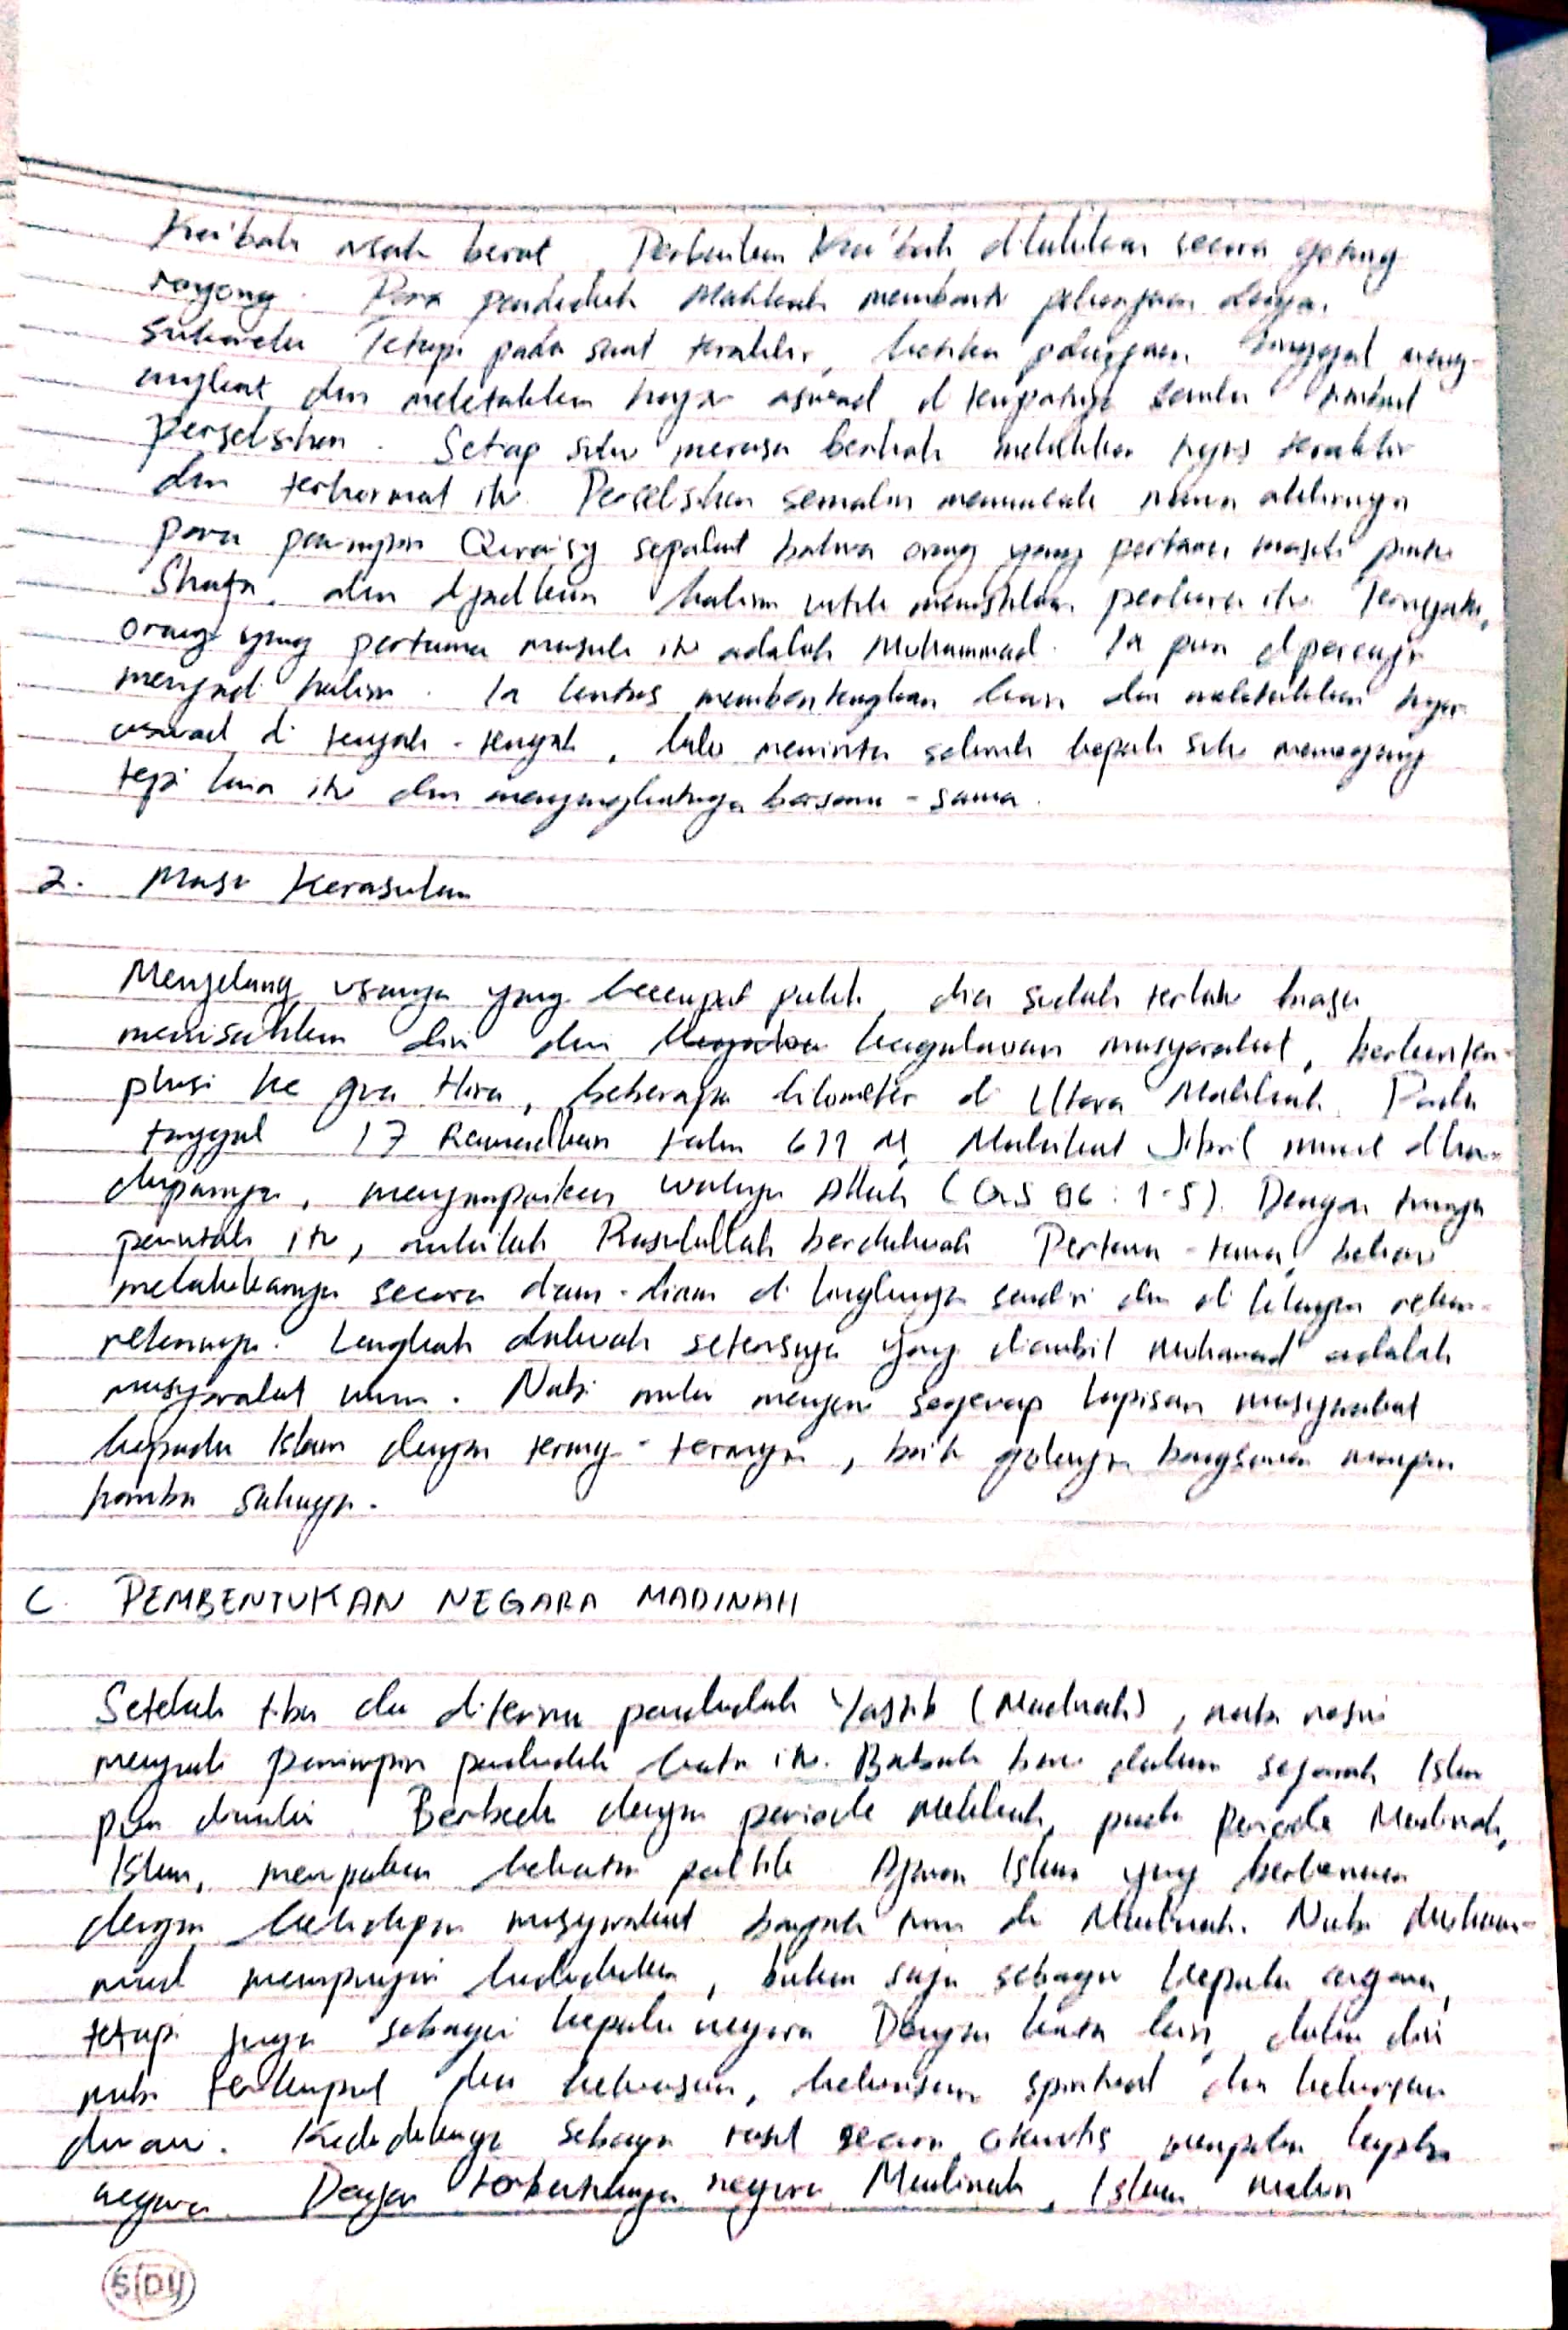 Ka'bah rusak berat. Perbaikan Ka'bah dilakukan secara gotong
royong. Para penduduk Makkah membantu pekerjaan dengan
sukarela Tetapi pada saat terakhir, ketika pekerjaan tinggal meng-
angkat dan meletakkan hajar aswad di tempatnya semula timbul
perselisihan. Setiap suku merasa berhak melakukan tugas terakhir
dan terhormat itu. Perselisihan semakin memuncak namun akhirnya
para pemimpin Quraisy sepakat bahwa orang yang pertama masuk pintu
Shafa, akan dijadikan hakim untuk memutuskan perkara itu. Ternyata,
orang yang pertama masuk itu adalah Muhammad. Ia pun dipercaya
menjadi hakim. Ia lantas membentangkan kain dan meletakkan hajar
aswad di tengah-tengah, lalu meminta seluruh kepala suku memegang
tepi kain itu dan mengangkatnya bersama-sama.
2. Masa Kerasulan
Menjelang usianya yang keempat puluh, dia sudah terlalu biasa
memisahkan diri dari kegalauan masyarakat, berkontem-
plasi ke gua Hira, beberapa kilometer di Utara Makkah. Pada
tanggal 17 Ramadhan tahun 611 M, Malaikat Jibril muncul diha-
dapannya, menyampaikan wahyu Allah (QS 96 : 1-5). Dengan turunnya
perintah itu, mulailah Rasulullah berdakwah Pertama-tama, beliau
melakukannya secara diam-diam di lingkungan sendiri dan di kalangan rekan-
rekannya. Langkah dakwah seterusnya yang diambil Muhammad adalah
masyarakat umum. Nabi mulai menyeru segenap lapisan masyarakat
kepada Islam dengan terang-terangan, baik golongan bangsawan maupun
hamba sahaya.
C. PEMBENTUKAN NEGARA MADINAH
Setelah tiba dan diterima penduduk Yastrib (Madinah), nabi resmi
menjadi pemimpin penduduk kota itu. Babak baru dalam sejarah Islam
pun dimulai. Berbeda dengan periode Makkah, pada periode Madinah,
Islam, merupakan kekuatan politik Ajaran Islam yang berkenaan
dengan kehidupan masyarakat banyak turun di Madinah. Nabi Muham-
mad mempunyai kedudukan, bukan saja sebagai kepala agama,
tetapi juga sebagai kepala negara Dengan kata lain, dalam diri
nabi terkumpul dua kekuasaan, kekuasaan spiritual dan kekuasaan
duniawi. Kedudukannya sebagai rasul secara otomatis merupakan kepala
negara. Dengan terbentuknya negara Madinah, Islam makin
SIDU